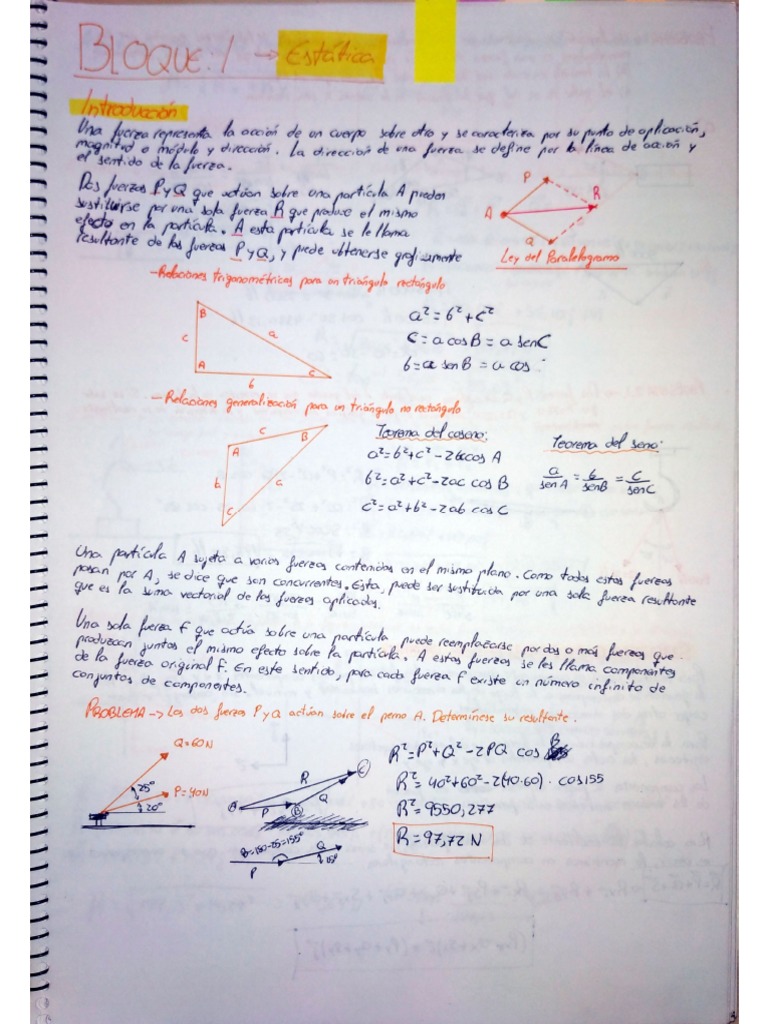 BLOQUE: 1 → Estática
Introducción
Una fuerza representa la acción de un cuerpo sobre otro y se caracteriza por su punto de aplicación,
magnitud o módulo y dirección. La dirección de una fuerza se define por la línea de acción y
el sentido de la fuerza.
Dos fuerzas P y Q que actúan sobre una partícula A pueden
sustituirse por una sola fuerza R que produce el mismo
efecto en la partícula. A esta partícula se le llama
resultante de las fuerzas P y Q, y puede obtenerse graficamente
P
R
A
Q
Ley del Paralelogramo
- Relaciones trigonométricas para un triángulo rectángulo
B
c
a
A
b
c
a² = b² + c²
c = a cos B = a sen C
b = a sen B = a cos
- Relaciones generalización para un triángulo no rectángulo
c
A
B
b
a
C
Teorema del coseno:
a² = b² + c² - 2bc cos A
b² = a² + c² - 2ac cos B
c² = a² + b² - 2ab cos C
Teorema del seno:
a/sen A = b/sen B = c/sen C
Una partícula A sujeta a varias fuerzas contenidas en el mismo plano. Como todas estas fuerzas
pasan por A, se dice que son concurrentes. Esta, puede ser sustituida por una sola fuerza resultante
que es la suma vectorial de las fuerzas aplicadas.
Una sola fuerza F que actúa sobre una partícula, puede reemplazarse por dos o más fuerzas que
produzcan juntas el mismo efecto sobre la partícula. A estas fuerzas se les llama componentes
de la fuerza original F. En este sentido, para cada fuerza F existe un número infinito de
conjuntos de componentes.
PROBLEMA → Las dos fuerzas P y Q actúan sobre el perno A. Determínese su resultante.
Q = 60 N
25°
P = 40 N
20°
R
C
A
P
B
Q
B = 180 - 25 = 155°
Q
P
R² = P² + Q² - 2PQ cos B
R² = 40² + 60² - 2(40·60) · cos 155
R² = 9550,277
R = 97,72 N
3